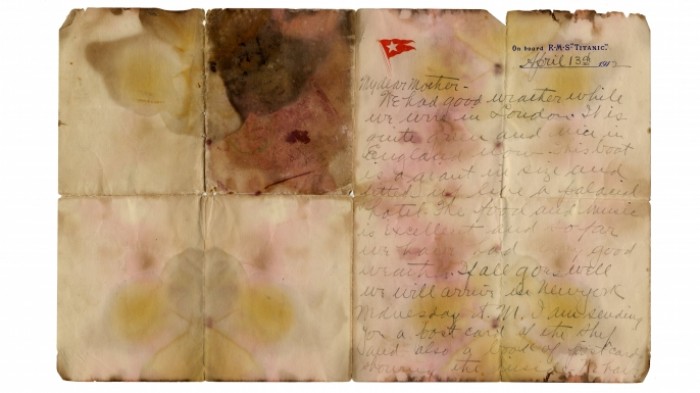 On board R·M·S "TITANIC."
April 13th 1912
My dear Mother -
We had good weather while
we were in London. It is
quite green and nice in
England now. This boat
is giant in size and
fitted up like a palacial
hotel. The food and music
is excellent and so far
we have had good
weather. If all goes well
we will arrive in New York
Wednesday A.M. I am sending
you a post card of the ship
and also a book of postcards
showing the inside